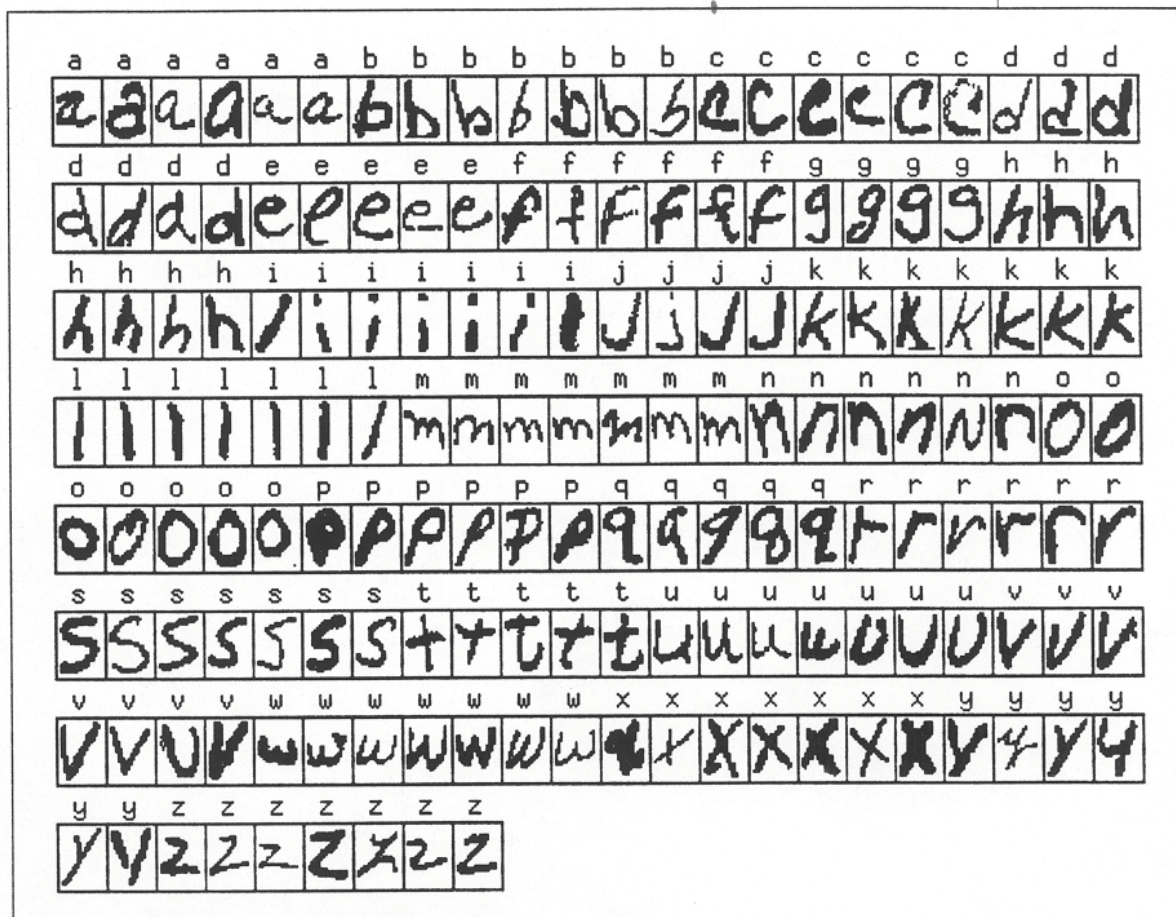 a a a a a a b b b b b b b c c c c c c d d d
a a a a a a b b b b b b b c c c c c c d d d
d d d d e e e e e f f f f f f g g g g h h h
d d d d e e e e e f f f f f f g g g g h h h
h h h h i i i i i i i j j j j k k k k k k k
h h h h i i i i i i i j j j j k k k k k k k
l l l l l l l m m m m m m m n n n n n n o o
l l l l l l l m m m m m m m n n n n n n o o
o o o o o p p p p p p q q q q q r r r r r r
o o o o o p p p p p p q q q q q r r r r r r
s s s s s s s t t t t t u u u u u u u v v v
s s s s s s s t t t t t u u u u u u u v v v
v v v v w w w w w w w x x x x x x x y y y y
v v v v w w w w w w w x x x x x x x y y y y
y y z z z z z z z
y y z z z z z z z